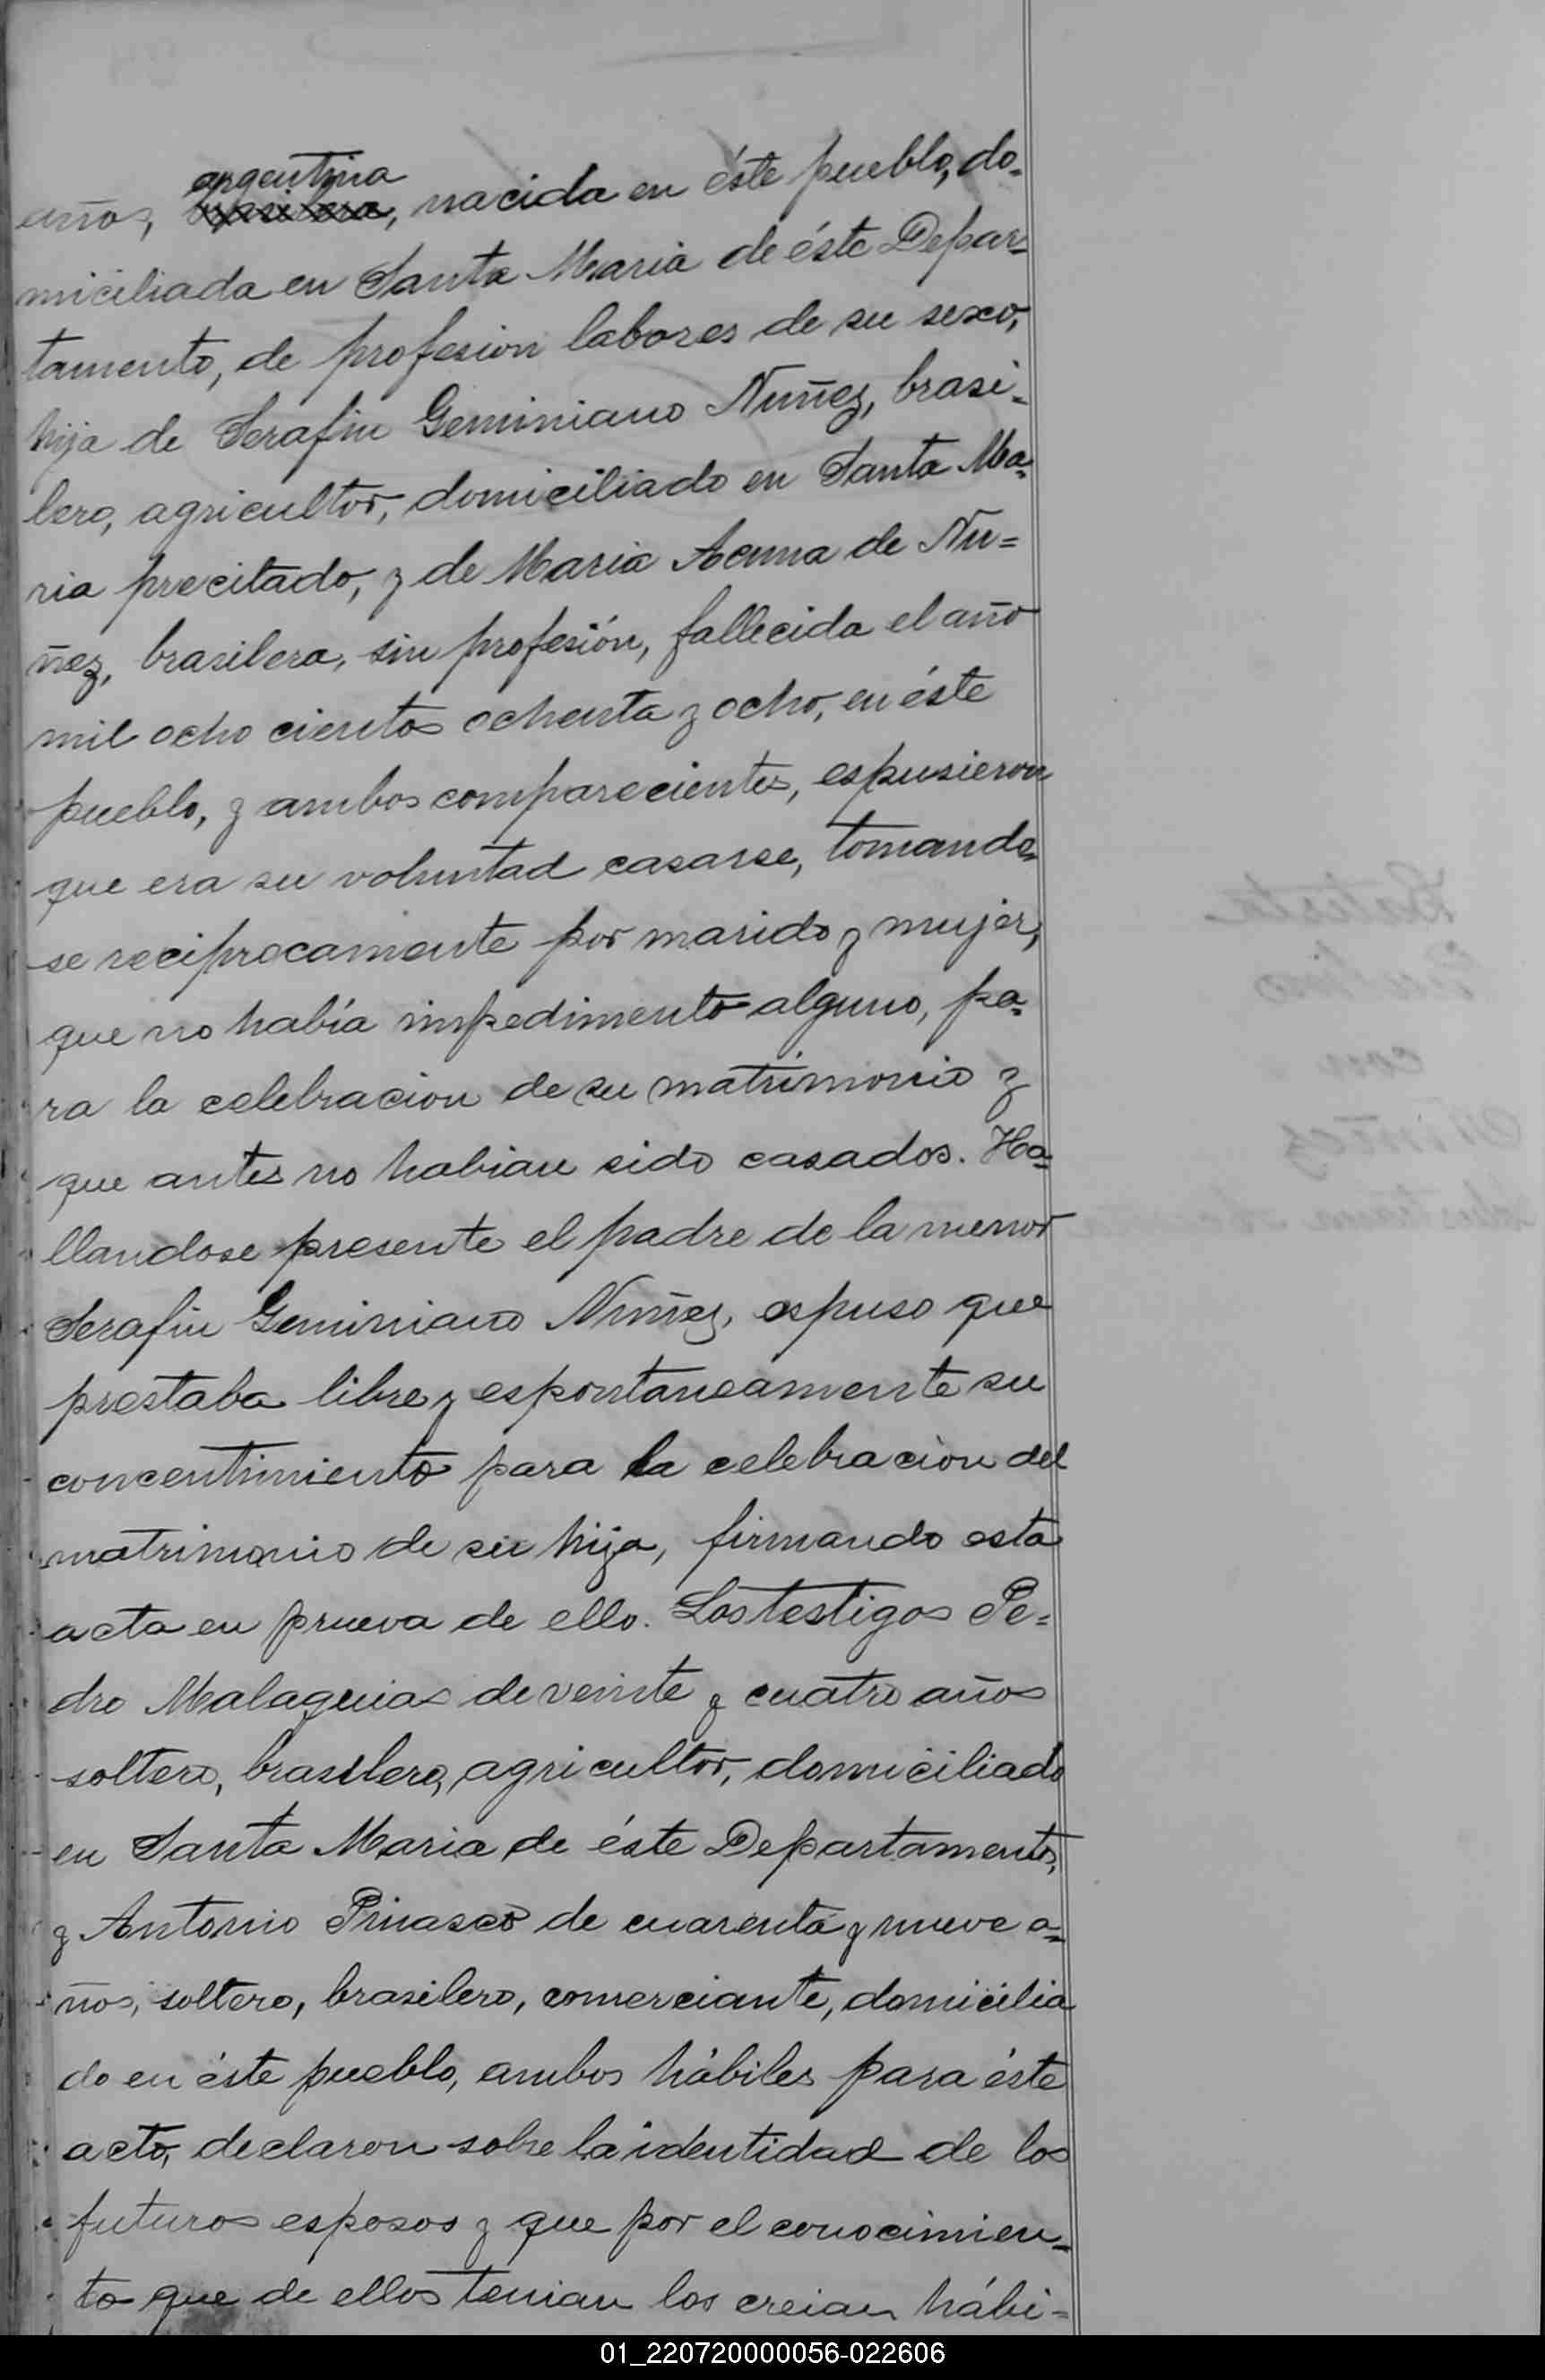 argentina
años, brasilera, nacida en éste pueblo, do-
miciliada en Santa Maria de éste Depar-
tamento, de profesion labores de su sexo,
hija de Serafin Geminiano Nuñez, brasi-
lero, agricultor, domiciliado en Santa Ma-
ria precitado, y de Maria Acuna de Nu=
ñez, brasilera, sin profesión, fallecida el año
mil ocho cientos ochenta y ocho, en éste
pueblo, y ambos comparecientes, espusieron
que era su voluntad casarse, tomando-
se reciprocamente por marido y mujer,
que no había impedimento alguno, pa-
ra la celebracion de su matrimonio y
que antes no habian sido casados. Ha-
llandose presente el padre de la menor
Serafin Geminiano Nuñez, espuso que
prestaba libre y espontaneamente su
concentimiento para la celebracion del
matrimonio de su hija, firmando esta
acta en prueva de ello. Los testigos Pe=
dro Malaquias de veinte y cuatro años
soltero, brasilero, agricultor, domiciliado
en Santa Maria de éste Departamento,
y Antonio Pinasco de cuarenta y nueve a-
ños, soltero, brasilero, comerciante, domicilia
do en éste pueblo, ambos hábiles para éste
acto, declaron sobre la identidad de los
futuros esposos y que por el conocimien-
to que de ellos tenian los creian hábi=
01_220720000056-022606